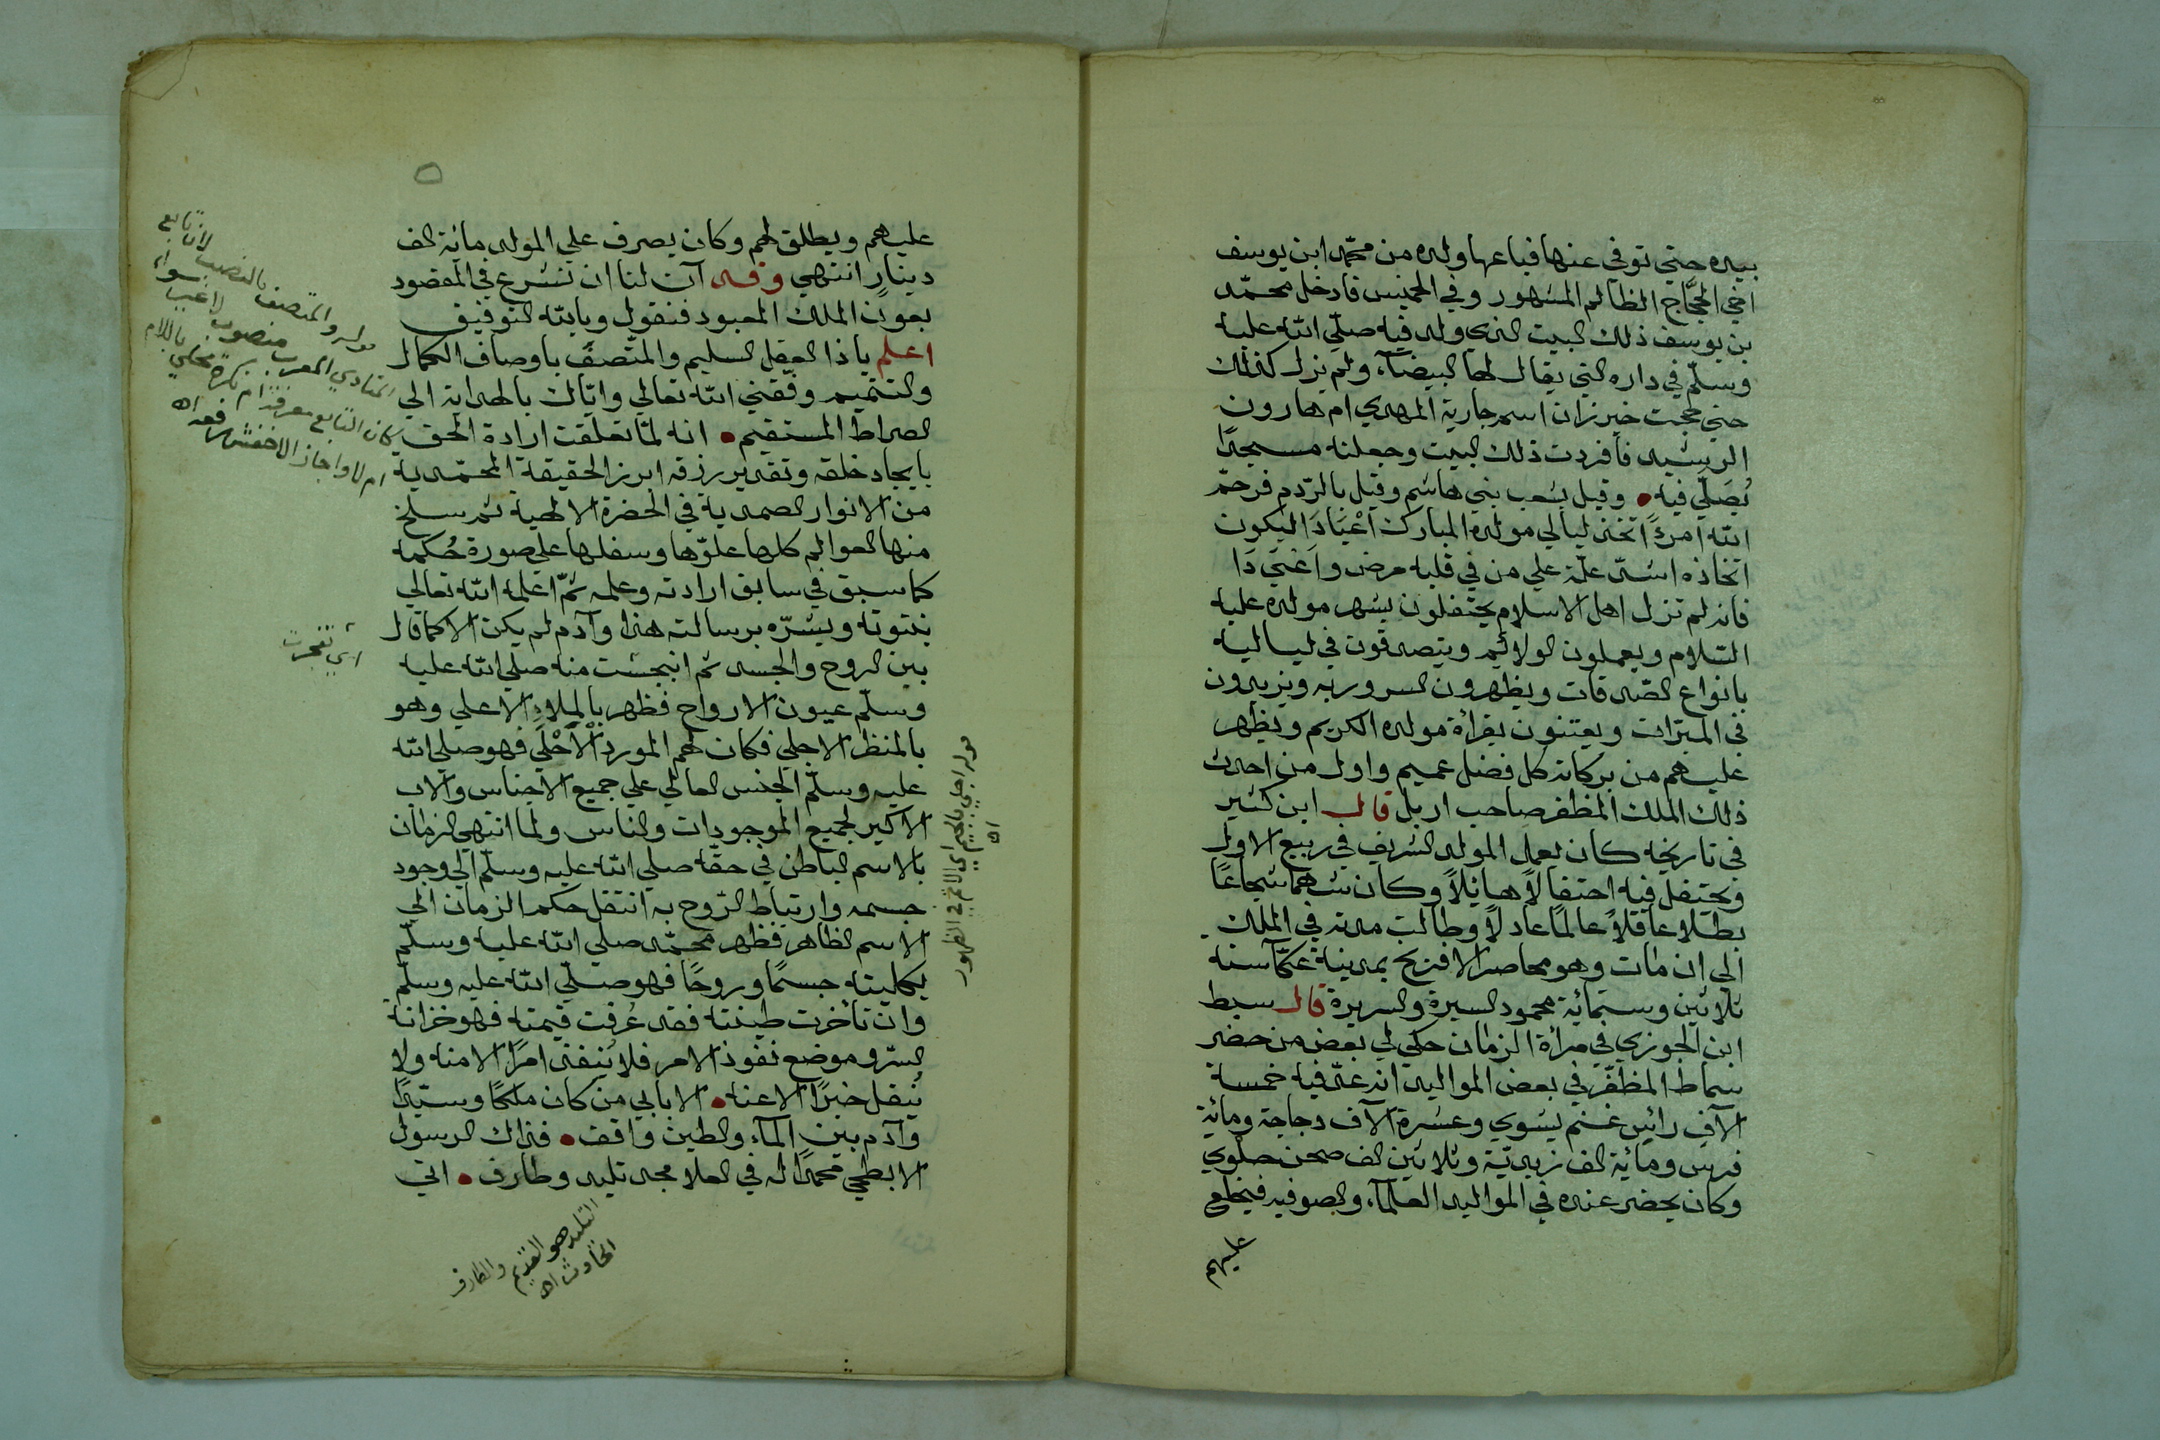 بيده حتي توفي عنها فباعها ولده من محمد ابن يوسف
اخي الحجّاج الظالم المشهور وفي الخميس فادخل محمّد
بن يوسف ذلك البيت الذي ولد فيه صلّي الله عليه
وسلّم في داره التي يقال لها البيضآء ولم يزل كذلك
حتي حجت خيزران اسم جارية المهدي ام هارون
الرشيد فأفردت ذلك البيت وجعلته مسجدًا
يُصَلّي فيه • وقيل بشعب بني هاشم وقيل بالرّدم فرحم
الله امرءً اتخذ ليالي مولده المبارك اعْيَادَا ليكون
اتخاذه اشدّ علّة علي من في قلبه مرض واَعْيَي دَا
فانه لم تزل اهل الاسلام يحتفلون بشهر مولده عليه
السّلام ويعملون الولائم ويتصدقون في لياليه
بانواع الصّدقات ويظهرون السرور به ويزيدون
في المبرّات ويعتنون بقرأة مولده الكريم ويظهر
عليهم من بركاته كل فضل عميم واول من احدث
ذلك الملك المظفر صاحب اربل قال ابن كثير
في تاريخه كان يعمل المولد الشريف في ربيع الاول
ويحتفل فيه احتفالًا هائلاً وكان شهما شجاعًا
بطلا عاقلاً عالمًا عادلًا وطالت مدته في الملك
الي ان مات وهو محاصر الافرنج بمدينة عكّا سنة
ثلاثين وستمائة محمود السيرة والسريرة قال سبط
ابن الجوزي في مرأة الزمان حكي لي بعض من حضر
سماط المظفّر في بعض المواليد انه عدّ فيه خمسة
الآف رائس غنم يشوي وعشرة الآف دجاجة ومائة
فرس ومائة الف زبديّة وثلاثين الف صحن حلوي
وكان يحضر عنده في المواليد العلمآء والصوفيه فيخلع
عليهم
٥
عليهم ويطلق لهم وكان يصرف علي المولد مائة الف
دينار انتهي وقد آن لنا ان نشرع في المقصود
بعون الملك المعبود فنقول وبالله التوفيق
اعلم ياذا العقل السليم والمتّصفً باوصاف الكمال
والتتميم وفّقني الله تعالي وايّاك بالهداية الي
الصراط المستقيم • انه لمّا تعلقت ارادة الحق
بايجاد خلقه وتقدير رزقه ابرز الحقيقة المحمّدية
من الانوار الصمدية في الحضرة الالهية ثم سلخ
منها العوالم كلها علوّها وسفلها علي صورة حُكمه
كما سبق في سابق ارادته وعلمه ثمّ اعلمه الله تعالي
بنبوته وبشّره برسالته هذا وآدم لم يكن الا كما قال
بين الروح والجسد ثم انبجست منه صلي الله عليه
وسلّم عيون الارواح فظهر بالملاءِ الاعلي وهو
بالمنظر الاجلي فكان لهم المورد الاَحْلَي فهو صلي الله
عليه وسلّم الجنس العالي علي جميع الاجناس والاب
الاكبر لجميع الموجودات والناس ولما انتهي الزمان
بالاسم الباطن في حقّه صلي الله عليه وسلّم الي وجود
جسمه وارتباط الرّوح به انتقل حكم الزمان الي
الاسم الظاهر فظهر محمّد صلي الله عليه وسلّم
بكليته جسمًا وروحًا فهو صلّي الله عليه وسلّم
وان تأخرت طينته فقد عُرفت قيمته فهو خزانة
السرّ وموضع نفوذ الامر فلا ينفذ امرًا الا منه ولا
يُنقل خبرًا الا عنه • الا بابي من كان ملكًا وسيّدًا
وآدم بين المآء والطين واقف • فذاك الرسول
الابطحي محمدًا له في العلا مجد تليد وطارف • اتي
قوله والمتصف بالنصب لان تابع
المنادي المعرب منصوب لا غير سواء
كان التابع معرفة ام نكرة محلي باللام
ام لا واجاز الاخفش رفعه اه
اي تفجرت
قوله اجلي بالجيم اي الاتم في الظهور
اه
التليد هو القديم والطارف
الحادث اه